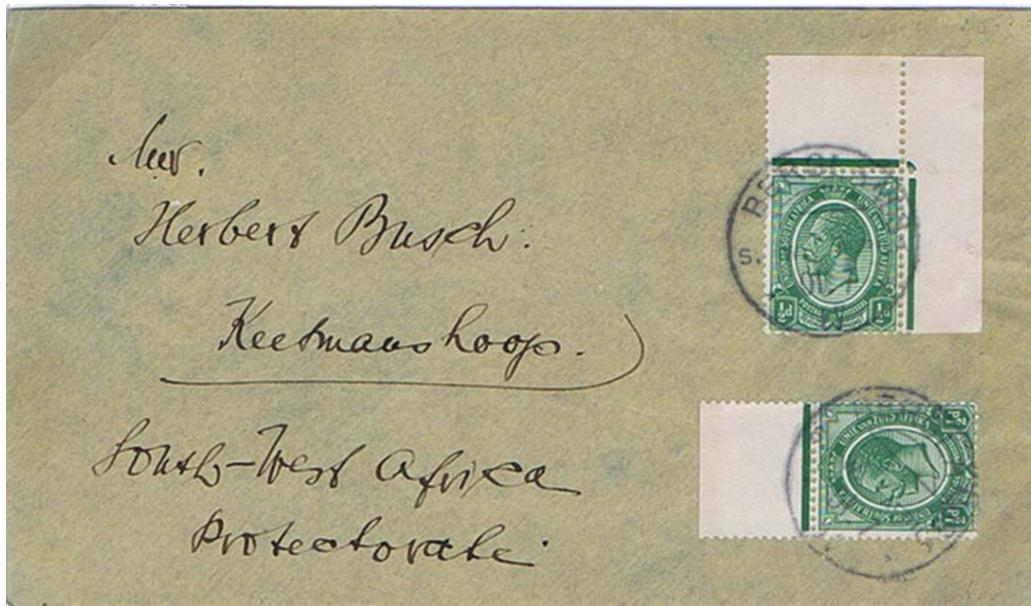 Herbert Busch.
Keetmanshoop.
South-West Afrika
Protectorate
UNION OF SOUTH AFRICA UNIE VAN ZUID AFRIKA
POSTAGE
½d ½d
UNION OF SOUTH AFRICA UNIE VAN ZUID AFRIKA
½d ½d